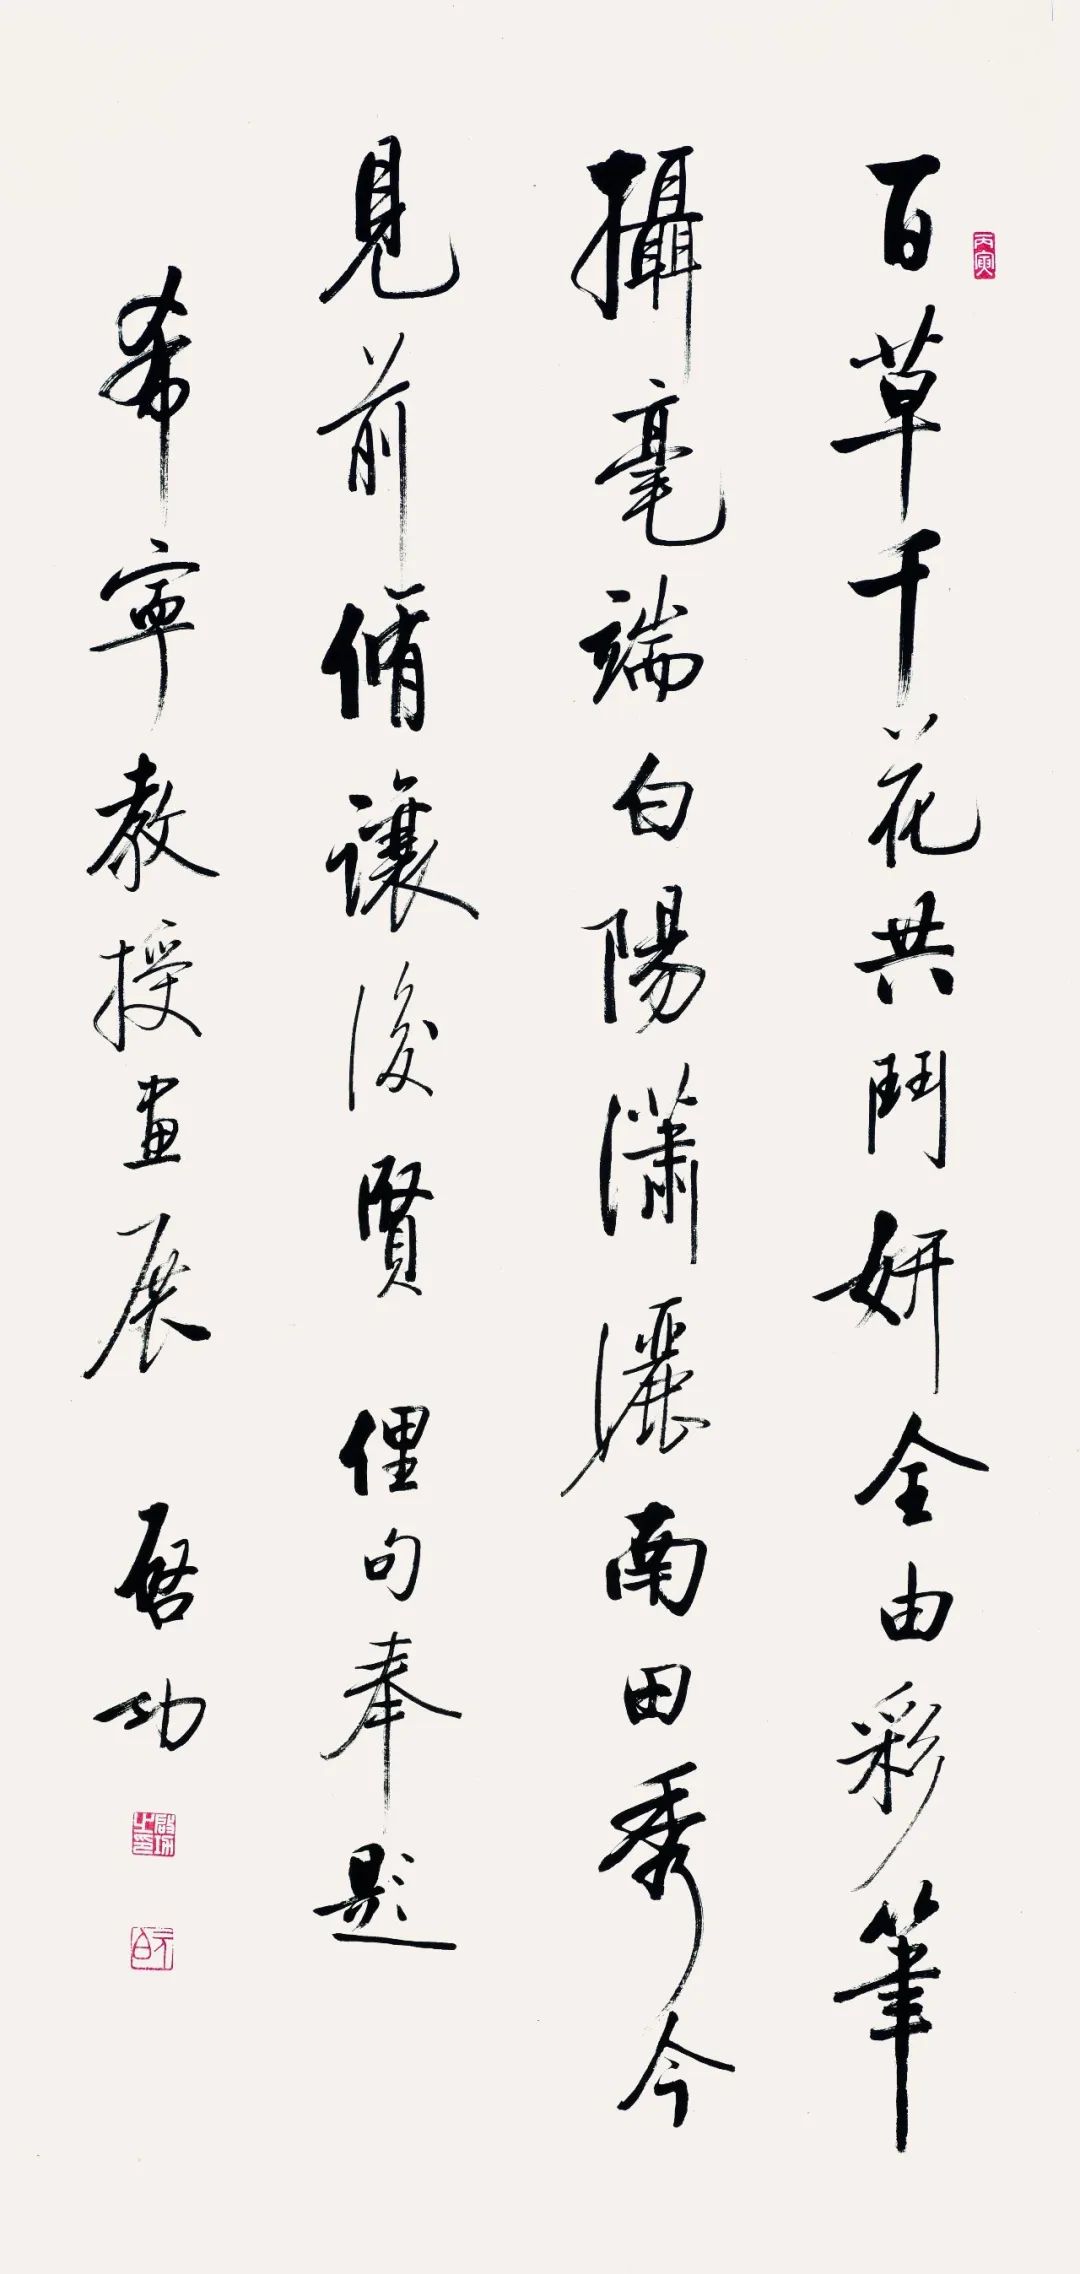 百草千花共鬥妍全由彩筆
攝毫端白陽瀟灑南田秀今
見前脩讓後賢 俚句奉題
希寧教授畫展 啓功
丙寅
啟功之印
元白